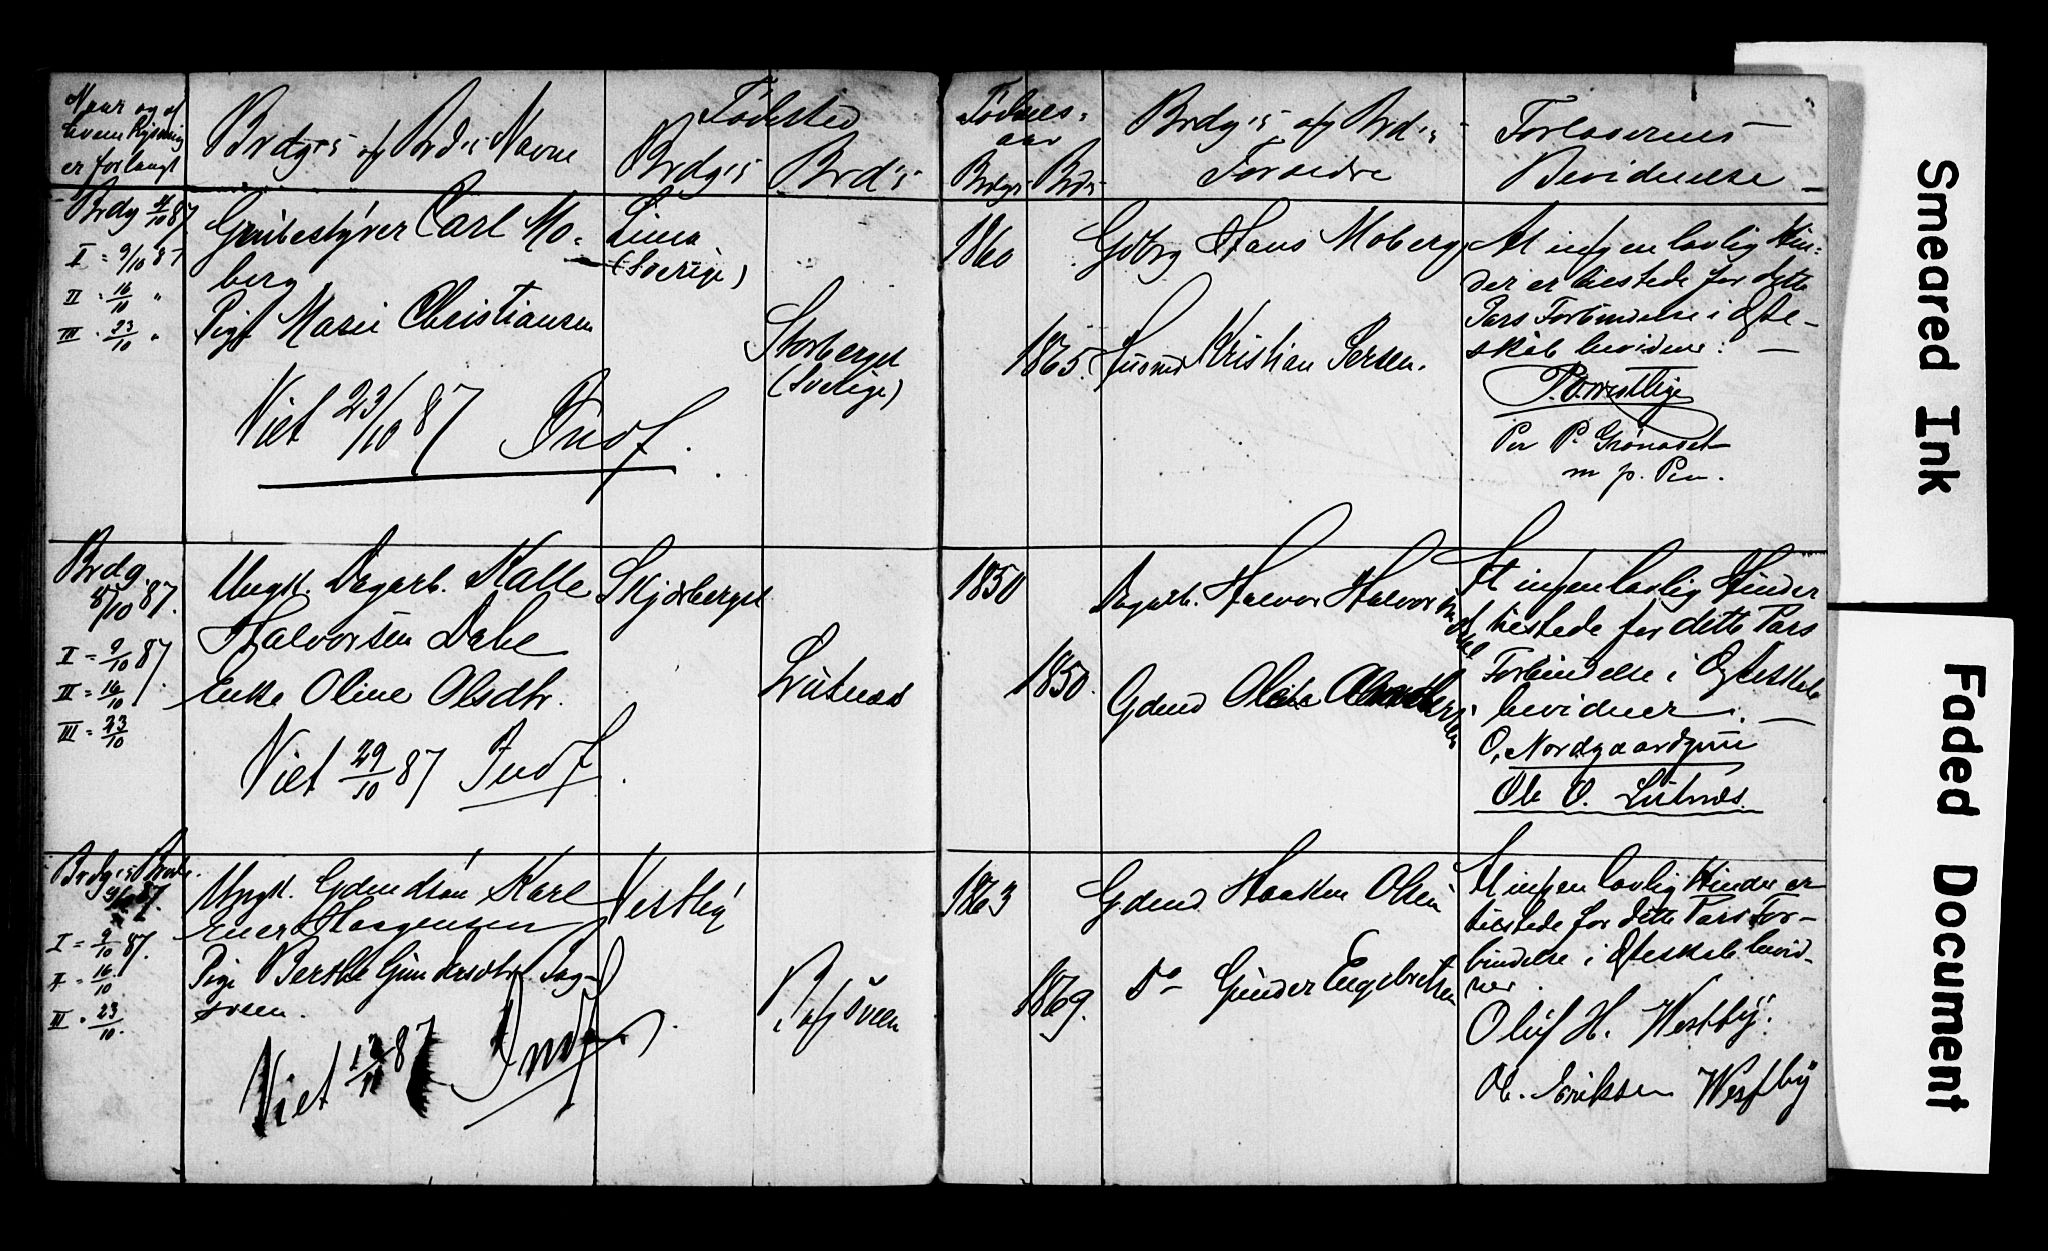 Naar og af
hvem Lysning
er forlangt
Brdg's og Brd's Navne
Fødested
Brdg's
Brd's
Fødsels-
aar
Brdg's Brd's
Brdg's og Brd's
Forældre
Forlovernes
Bevidnelse
Brdg 4/10 87
I = 9/10 87
II = 16/10 "
III = 23/10 "
Grubestyver Carl Mo-
berg
Pige Marie Christiansen
Viet 23/10 87
Lima
(Sverige)
Storberget
(Sverige)
1860
1865.
Gdbrg Hans Moberg
Husmd Kristian Persen.
At ingen lovlig Hin-
der er tilstede for dette
Pars Forbindelse i Ægte-
skab bevidner:
Per P. Grønoset
m. p. Pen.
Brdg.
8/10 87.
I = 9/10 87.
II = 16/10
III = 23/10
Ungk. Dagarb. Kalle
Halvorsen
Enke Oline Olsdtr.
Viet 29/10 87
Skjærberget
Lutnæs
1850
1850.
Dagarb. Halvor Halvor
Gdmd
At ingen lovlig Hinder
tilstede for dette Pars
Forbindelse i Ægteskab
bevidner.
O. Nordgaard
Ole O. Lutnæs.
Brdg's
9/10 87.
I = 9/10 87.
II = 16/10
III = 23/10.
Ungk. Gdmdsøn Karl
Haagensen
Pige Berthe Gundersdtr.
Viet
Vestby
1863
1869.
Gdmd Haaken Olsen
Do Gunder Engebretsen
At ingen lovlig Hinder er
tilstede for dette Pars For-
bindelse i Ægteskab bevid-
ner.
Oluf H. Westby.
Ol. Eriksen Westby
Smeared Ink
Faded Document